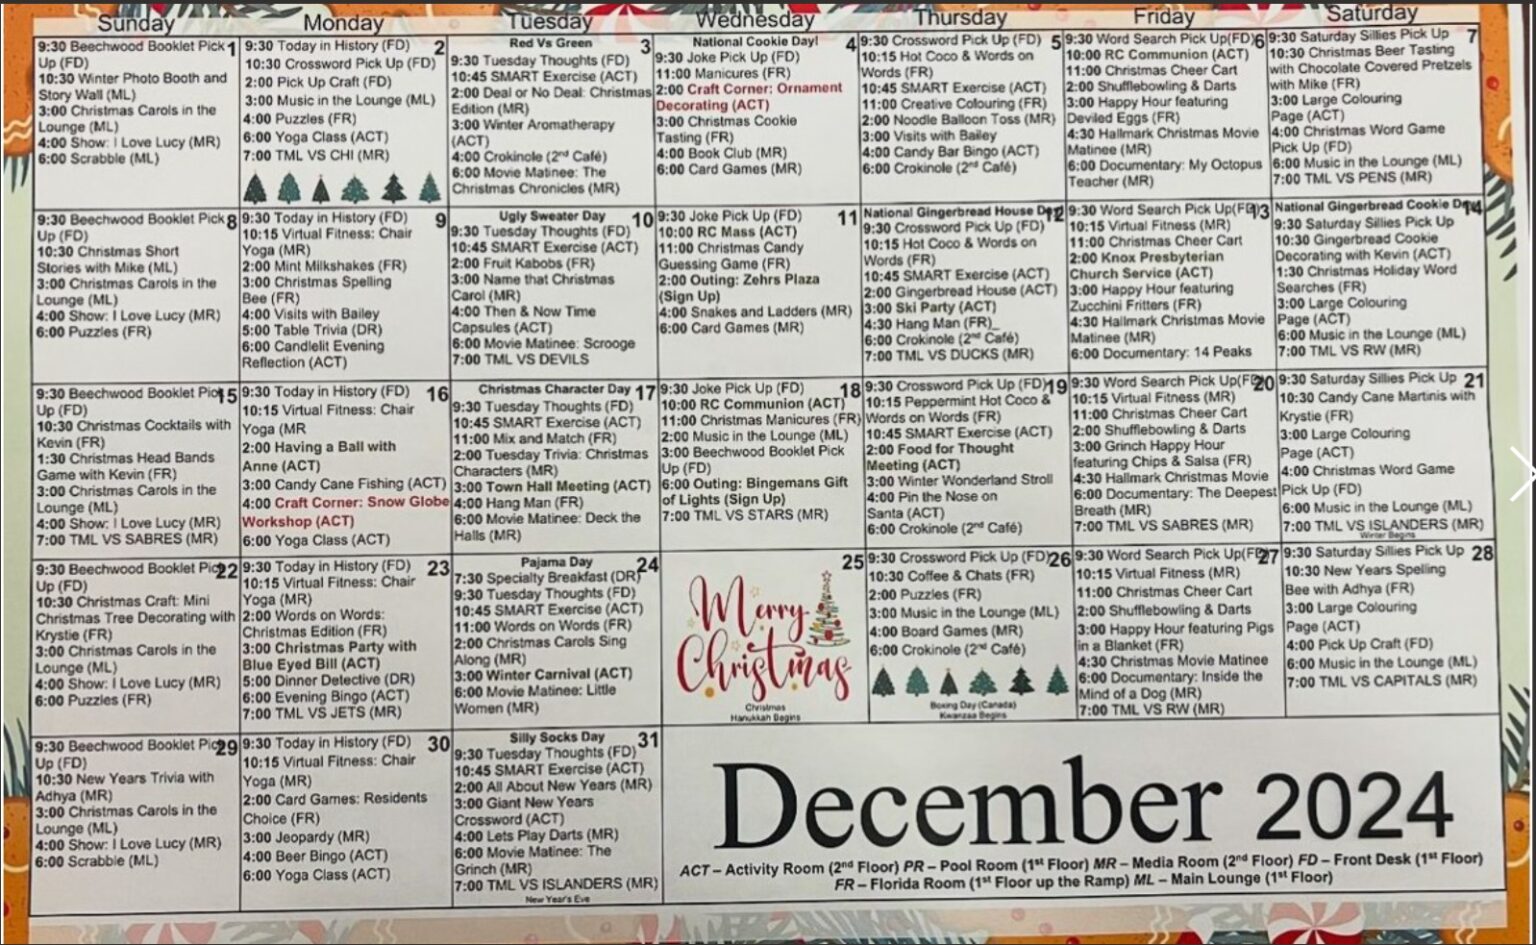 Sunday Monday Tuesday Wednesday Thursday Friday Saturday
1
9:30 Beechwood Booklet Pick
Up (FD)
10:30 Winter Photo Booth and
Story Wall (ML)
3:00 Christmas Carols in the
Lounge (ML)
4:00 Show: I Love Lucy (MR)
6:00 Scrabble (ML)
2
9:30 Today in History (FD)
10:30 Crossword Pick Up (FD)
2:00 Pick Up Craft (FD)
3:00 Music in the Lounge (ML)
4:00 Puzzles (FR)
6:00 Yoga Class (ACT)
7:00 TML VS CHI (MR)
3
Red Vs Green
9:30 Tuesday Thoughts (FD)
10:45 SMART Exercise (ACT)
2:00 Deal or No Deal: Christmas
Edition (MR)
3:00 Winter Aromatherapy
(ACT)
4:00 Crokinole (2nd Café)
6:00 Movie Matinee: The
Christmas Chronicles (MR)
4
National Cookie Day!
9:30 Joke Pick Up (FD)
11:00 Manicures (FR)
2:00 Craft Corner: Ornament
Decorating (ACT)
3:00 Christmas Cookie
Tasting (FR)
4:00 Book Club (MR)
6:00 Card Games (MR)
5
9:30 Crossword Pick Up (FD)
10:15 Hot Coco & Words on
Words (FR)
10:45 SMART Exercise (ACT)
11:00 Creative Colouring (FR)
2:00 Noodle Balloon Toss (MR)
3:00 Visits with Bailey
4:00 Candy Bar Bingo (ACT)
6:00 Crokinole (2nd Café)
6
9:30 Word Search Pick Up(FD)
10:00 RC Communion (ACT)
11:00 Christmas Cheer Cart
2:00 Shufflebowling & Darts
3:00 Happy Hour featuring
Deviled Eggs (FR)
4:30 Hallmark Christmas Movie
Matinee (MR)
6:00 Documentary: My Octopus
Teacher (MR)
7
9:30 Saturday Sillies Pick Up
10:30 Christmas Beer Tasting
with Chocolate Covered Pretzels
with Mike (FR)
3:00 Large Colouring
Page (ACT)
4:00 Christmas Word Game
Pick Up (FD)
6:00 Music in the Lounge (ML)
7:00 TML VS PENS (MR)
8
9:30 Beechwood Booklet Pick
Up (FD)
10:30 Christmas Short
Stories with Mike (ML)
3:00 Christmas Carols in the
Lounge (ML)
4:00 Show: I Love Lucy (MR)
6:00 Puzzles (FR)
9
9:30 Today in History (FD)
10:15 Virtual Fitness: Chair
Yoga (MR)
2:00 Mint Milkshakes (FR)
3:00 Christmas Spelling
Bee (FR)
4:00 Visits with Bailey
5:00 Table Trivia (DR)
6:00 Candlelit Evening
Reflection (ACT)
10
Ugly Sweater Day
9:30 Tuesday Thoughts (FD)
10:45 SMART Exercise (ACT)
2:00 Fruit Kabobs (FR)
3:00 Name that Christmas
Carol (MR)
4:00 Then & Now Time
Capsules (ACT)
6:00 Movie Matinee: Scrooge
7:00 TML VS DEVILS
11
9:30 Joke Pick Up (FD)
10:00 RC Mass (ACT)
11:00 Christmas Candy
Guessing Game (FR)
2:00 Outing: Zehrs Plaza
(Sign Up)
4:00 Snakes and Ladders (MR)
6:00 Card Games (MR)
12
National Gingerbread House
9:30 Crossword Pick Up (FD)
10:15 Hot Coco & Words on
Words (FR)
10:45 SMART Exercise (ACT)
2:00 Gingerbread House (ACT)
3:00 Ski Party (ACT)
4:30 Hang Man (FR)_
6:00 Crokinole (2nd Café)
7:00 TML VS DUCKS (MR)
13
9:30 Word Search Pick Up(FD)
10:15 Virtual Fitness (MR)
11:00 Christmas Cheer Cart
2:00 Knox Presbyterian
Church Service (ACT)
3:00 Happy Hour featuring
Zucchini Fritters (FR)
4:30 Hallmark Christmas Movie
Matinee (MR)
6:00 Documentary: 14 Peaks
14
National Gingerbread Cookie
9:30 Saturday Sillies Pick Up
10:30 Gingerbread Cookie
Decorating with Kevin (ACT)
1:30 Christmas Holiday Word
Searches (FR)
3:00 Large Colouring
Page (ACT)
6:00 Music in the Lounge (ML)
7:00 TML VS RW (MR)
15
9:30 Beechwood Booklet Pick
Up (FD)
10:30 Christmas Cocktails with
Kevin (FR)
1:30 Christmas Head Bands
Game with Kevin (FR)
3:00 Christmas Carols in the
Lounge (ML)
4:00 Show: I Love Lucy (MR)
7:00 TML VS SABRES (MR)
16
9:30 Today in History (FD)
10:15 Virtual Fitness: Chair
Yoga (MR
2:00 Having a Ball with
Anne (ACT)
3:00 Candy Cane Fishing (ACT)
4:00 Craft Corner: Snow Globe
Workshop (ACT)
6:00 Yoga Class (ACT)
17
Christmas Character Day
9:30 Tuesday Thoughts (FD)
10:45 SMART Exercise (ACT)
11:00 Mix and Match (FR)
2:00 Tuesday Trivia: Christmas
Characters (MR)
3:00 Town Hall Meeting (ACT)
4:00 Hang Man (FR)
6:00 Movie Matinee: Deck the
Halls (MR)
18
9:30 Joke Pick Up (FD)
10:00 RC Communion (ACT)
11:00 Christmas Manicures (FR)
2:00 Music in the Lounge (ML)
3:00 Beechwood Booklet Pick
Up (FD)
6:00 Outing: Bingemans Gift
of Lights (Sign Up)
7:00 TML VS STARS (MR)
19
9:30 Crossword Pick Up (FD)
10:15 Peppermint Hot Coco &
Words on Words (FR)
10:45 SMART Exercise (ACT)
2:00 Food for Thought
Meeting (ACT)
3:00 Winter Wonderland Stroll
4:00 Pin the Nose on
Santa (ACT)
6:00 Crokinole (2nd Café)
20
9:30 Word Search Pick Up(FD)
10:15 Virtual Fitness (MR)
11:00 Christmas Cheer Cart
2:00 Shufflebowling & Darts
3:00 Grinch Happy Hour
featuring Chips & Salsa (FR)
4:30 Hallmark Christmas Movie
6:00 Documentary: The Deepest
Breath (MR)
7:00 TML VS SABRES (MR)
21
9:30 Saturday Sillies Pick Up
10:30 Candy Cane Martinis with
Krystie (FR)
3:00 Large Colouring
Page (ACT)
4:00 Christmas Word Game
Pick Up (FD)
6:00 Music in the Lounge (ML)
7:00 TML VS ISLANDERS (MR)
Winter Begins
22
9:30 Beechwood Booklet Pick
Up (FD)
10:30 Christmas Craft: Mini
Christmas Tree Decorating with
Krystie (FR)
3:00 Christmas Carols in the
Lounge (ML)
4:00 Show: I Love Lucy (MR)
6:00 Puzzles (FR)
23
9:30 Today in History (FD)
10:15 Virtual Fitness: Chair
Yoga (MR)
2:00 Words on Words:
Christmas Edition (FR)
3:00 Christmas Party with
Blue Eyed Bill (ACT)
5:00 Dinner Detective (DR)
6:00 Evening Bingo (ACT)
7:00 TML VS JETS (MR)
24
Pajama Day
7:30 Specialty Breakfast (DR)
9:30 Tuesday Thoughts (FD)
10:45 SMART Exercise (ACT)
11:00 Words on Words (FR)
2:00 Christmas Carols Sing
Along (MR)
3:00 Winter Carnival (ACT)
6:00 Movie Matinee: Little
Women (MR)
25
Merry
Christmas
Christmas
Hanukkah Begins
26
9:30 Crossword Pick Up (FD)
10:30 Coffee & Chats (FR)
2:00 Puzzles (FR)
3:00 Music in the Lounge (ML)
4:00 Board Games (MR)
6:00 Crokinole (2nd Café)
Boxing Day (Canada)
Kwanzaa Begins
27
9:30 Word Search Pick Up(FD)
10:15 Virtual Fitness (MR)
11:00 Christmas Cheer Cart
2:00 Shufflebowling & Darts
3:00 Happy Hour featuring Pigs
in a Blanket (FR)
4:30 Christmas Movie Matinee
6:00 Documentary: Inside the
Mind of a Dog (MR)
7:00 TML VS RW (MR)
28
9:30 Saturday Sillies Pick Up
10:30 New Years Spelling
Bee with Adhya (FR)
3:00 Large Colouring
Page (ACT)
4:00 Pick Up Craft (FD)
6:00 Music in the Lounge (ML)
7:00 TML VS CAPITALS (MR)
29
9:30 Beechwood Booklet Pick
Up (FD)
10:30 New Years Trivia with
Adhya (MR)
3:00 Christmas Carols in the
Lounge (ML)
4:00 Show: I Love Lucy (MR)
6:00 Scrabble (ML)
30
9:30 Today in History (FD)
10:15 Virtual Fitness: Chair
Yoga (MR)
2:00 Card Games: Residents
Choice (FR)
3:00 Jeopardy (MR)
4:00 Beer Bingo (ACT)
6:00 Yoga Class (ACT)
31
Silly Socks Day
9:30 Tuesday Thoughts (FD)
10:45 SMART Exercise (ACT)
2:00 All About New Years (MR)
3:00 Giant New Years
Crossword (ACT)
4:00 Lets Play Darts (MR)
6:00 Movie Matinee: The
Grinch (MR)
7:00 TML VS ISLANDERS (MR)
New Year's Eve
December 2024
ACT – Activity Room (2nd Floor) PR – Pool Room (1st Floor) MR – Media Room (2nd Floor) FD – Front Desk (1st Floor)
FR – Florida Room (1st Floor up the Ramp) ML – Main Lounge (1st Floor)